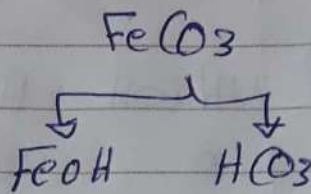 FeCO3
FeOH HCO3